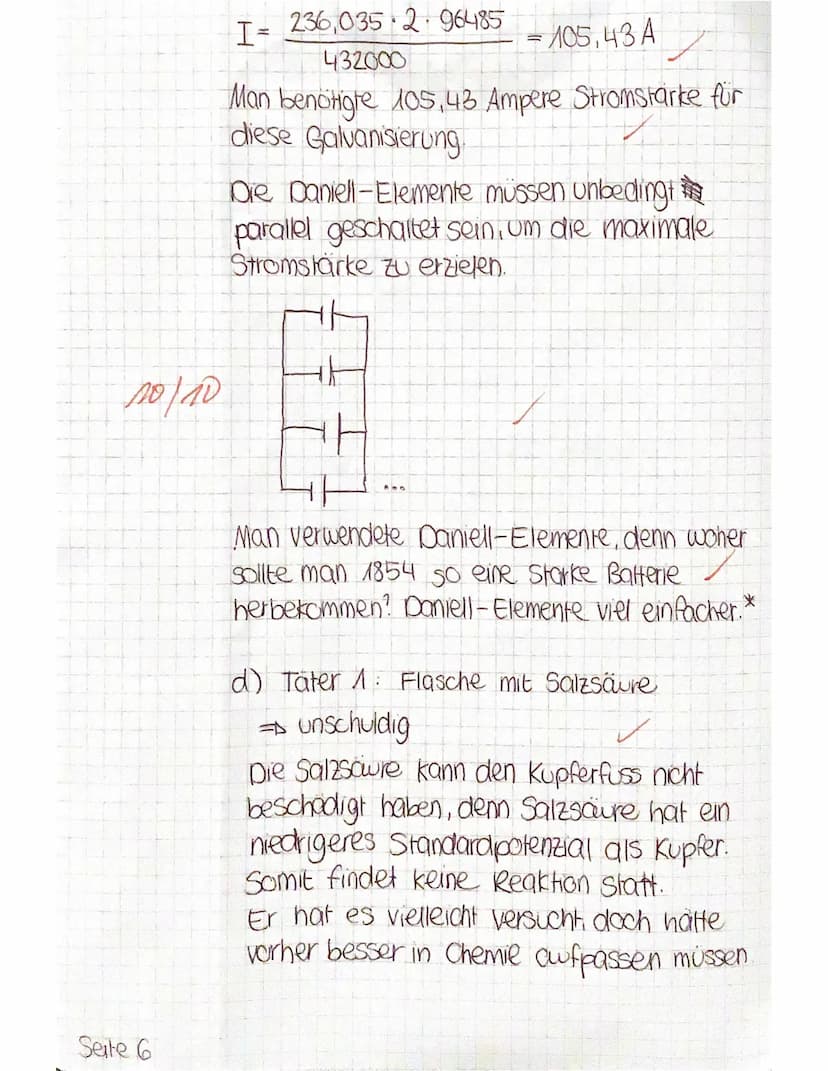 I = 236,035 · 2 · 96485 / 432000 = 105,43 A
Man benötigte 105,43 Ampere Stromstärke für
diese Galvanisierung.
Die Daniell-Elemente müssen unbedingt
parallel geschaltet sein, um die maximale
Stromstärke zu erzielen.
10/10
...
Man verwendete Daniell-Elemente, denn woher
sollte man 1854 so eine starke Batterie
herbekommen? Daniell-Elemente viel einfacher.*
d) Täter 1: Flasche mit Salzsäure
⇒ unschuldig
Die Salzsäure kann den Kupferfuss nicht
beschädigt haben, denn Salzsäure hat ein
niedrigeres Standardpotenzial als Kupfer.
Somit findet keine Reaktion statt.
Er hat es vielleicht versucht, doch hätte
vorher besser in Chemie aufpassen müssen.
Seite 6